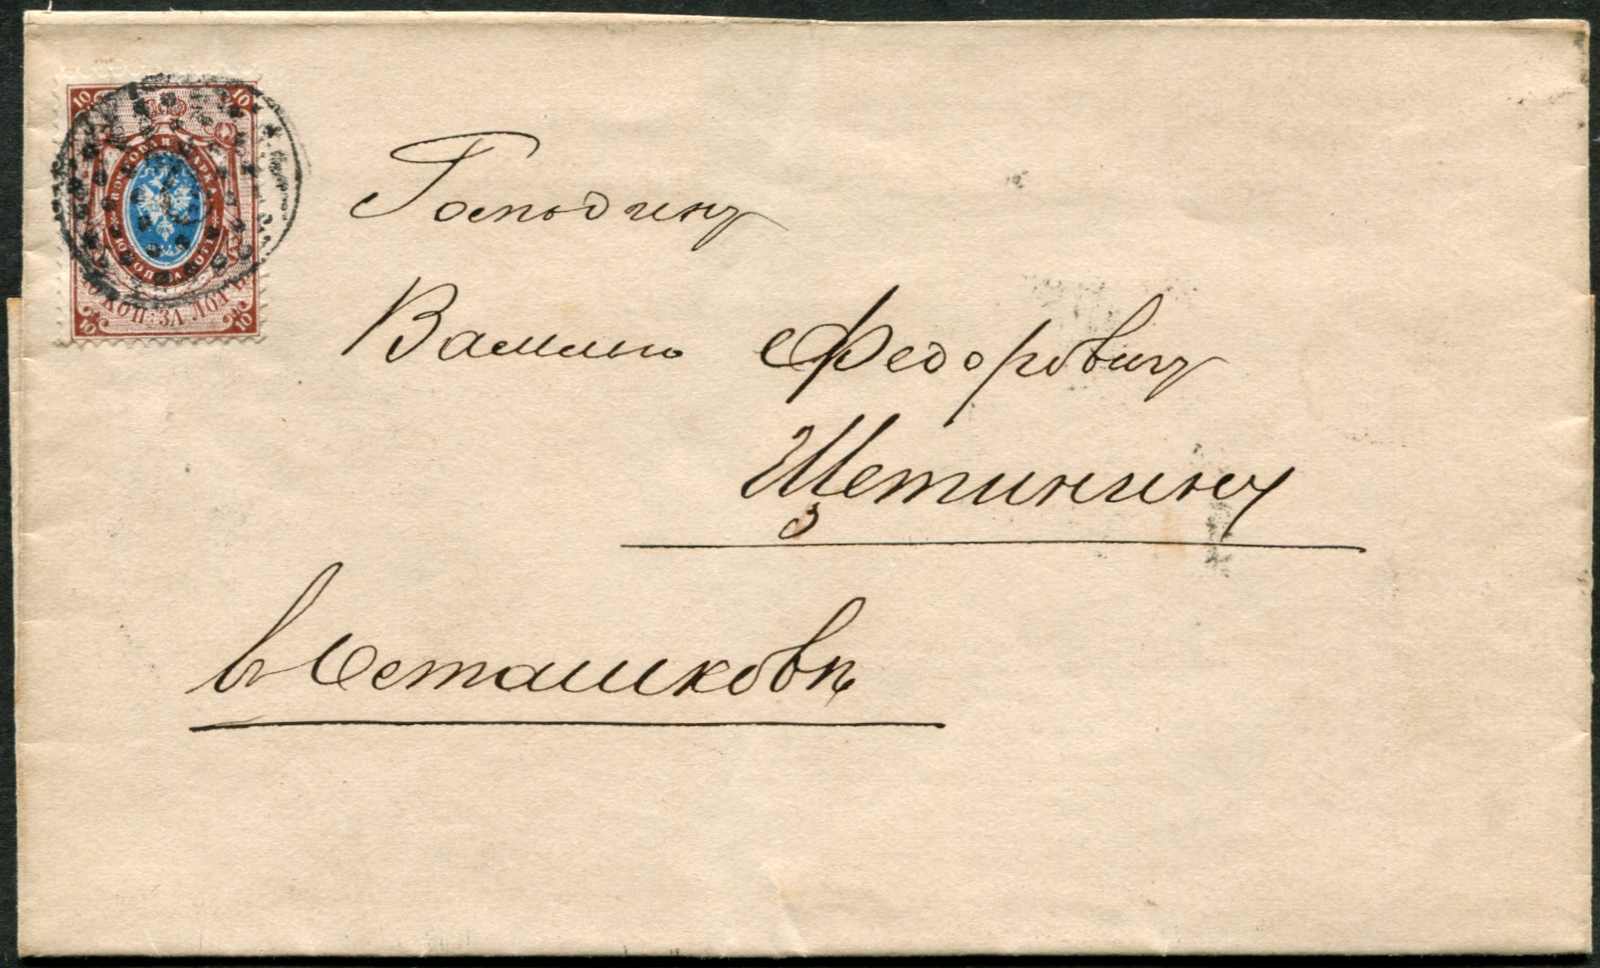 10 10
ПОЧТОВАЯ МАРКА
10 КОП. ЗА ЛОТЪ
10 КОП: ЗА ЛОТЪ
10 10
Господину
Василью Федоровичу
Щетинину
въ Осташковѣ